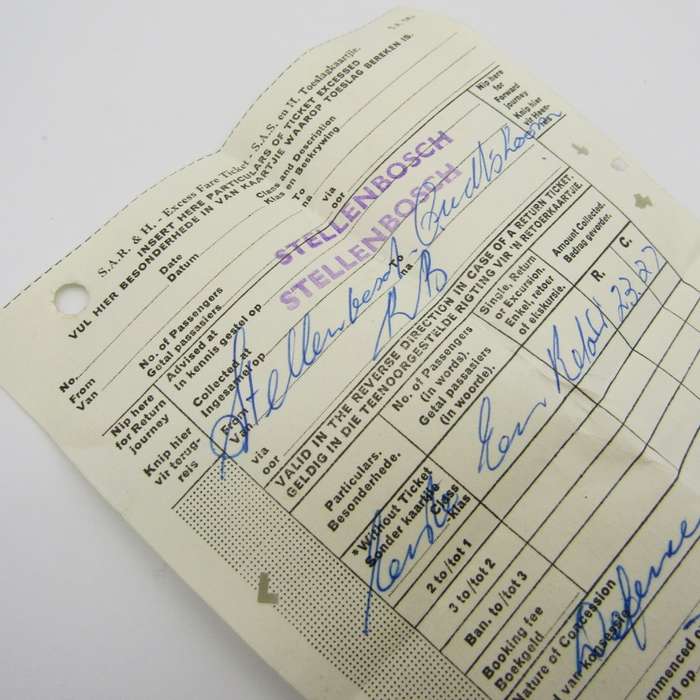 S.A.R. & H. - Excess Fare Ticket - S.A.S. en H. Toeslagkaartjie.
INSERT HERE PARTICULARS OF TICKET EXCESSED
VUL HIER BESONDERHEDE IN VAN KAARTJIE WAAROP TOESLAG BEREKEN IS.
Date
Datum
Class and Description
Klas en Beskrywing
No.
From
Van
To
na
via
oor
No. of Passengers
Getal passasiers
Advised at
in kennis gestel op
Collected at
Ingesamel op
STELLENBOSCH
STELLENBOSCH
Nip here
for
Forward
journey
Knip hier
vir Heen-
Nip here
for Return
journey
Knip hier
vir terug-
reis
From
Van
Stellenbosch
To
na
Oudtshoorn
via
oor
VALID IN THE REVERSE DIRECTION IN CASE OF A RETURN TICKET.
GELDIG IN DIE TEENOORGESTELDE RIGTING VIR 'N RETOERKAARTJIE.
Particulars.
Besonderhede.
No. of Passengers
(in words).
Getal passasiers
(in woorde).
Single, Return
or Excursion.
Enkel, retoer
of ekskursie.
Amount Collected.
Bedrag gevorder.
R. C.
*Without Ticket
Sonder kaartjie
Class
-klas
Een
23 27
2 to/tot 1
3 to/tot 2
Ban. to/tot 3
Booking fee
Boekgeld
Nature of Concession
van konsessie